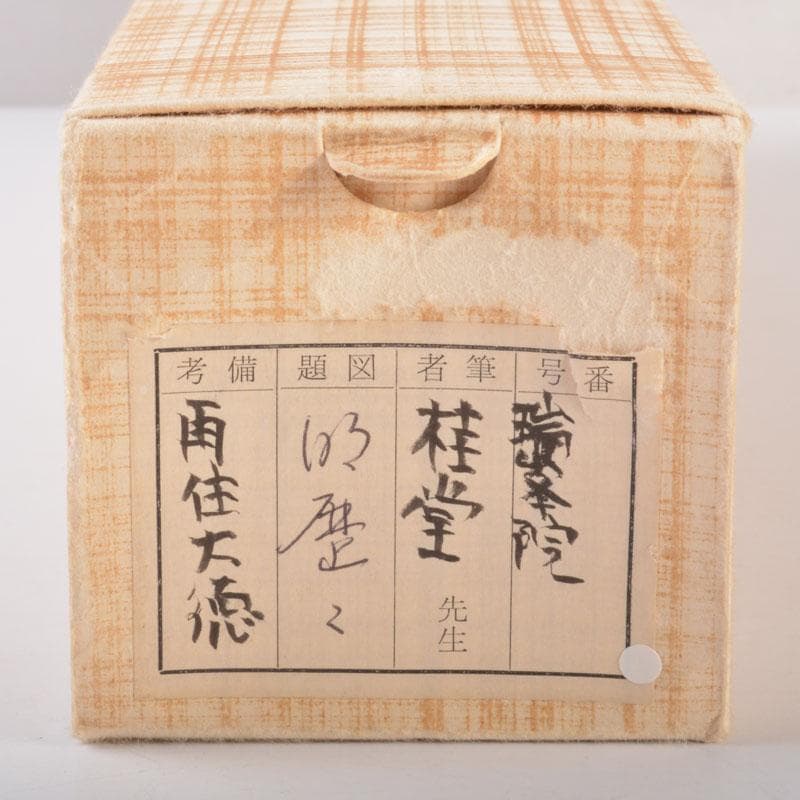 番号
瑞峯院
筆者
桂堂
先生
図題
明歴々
備考
再住大徳